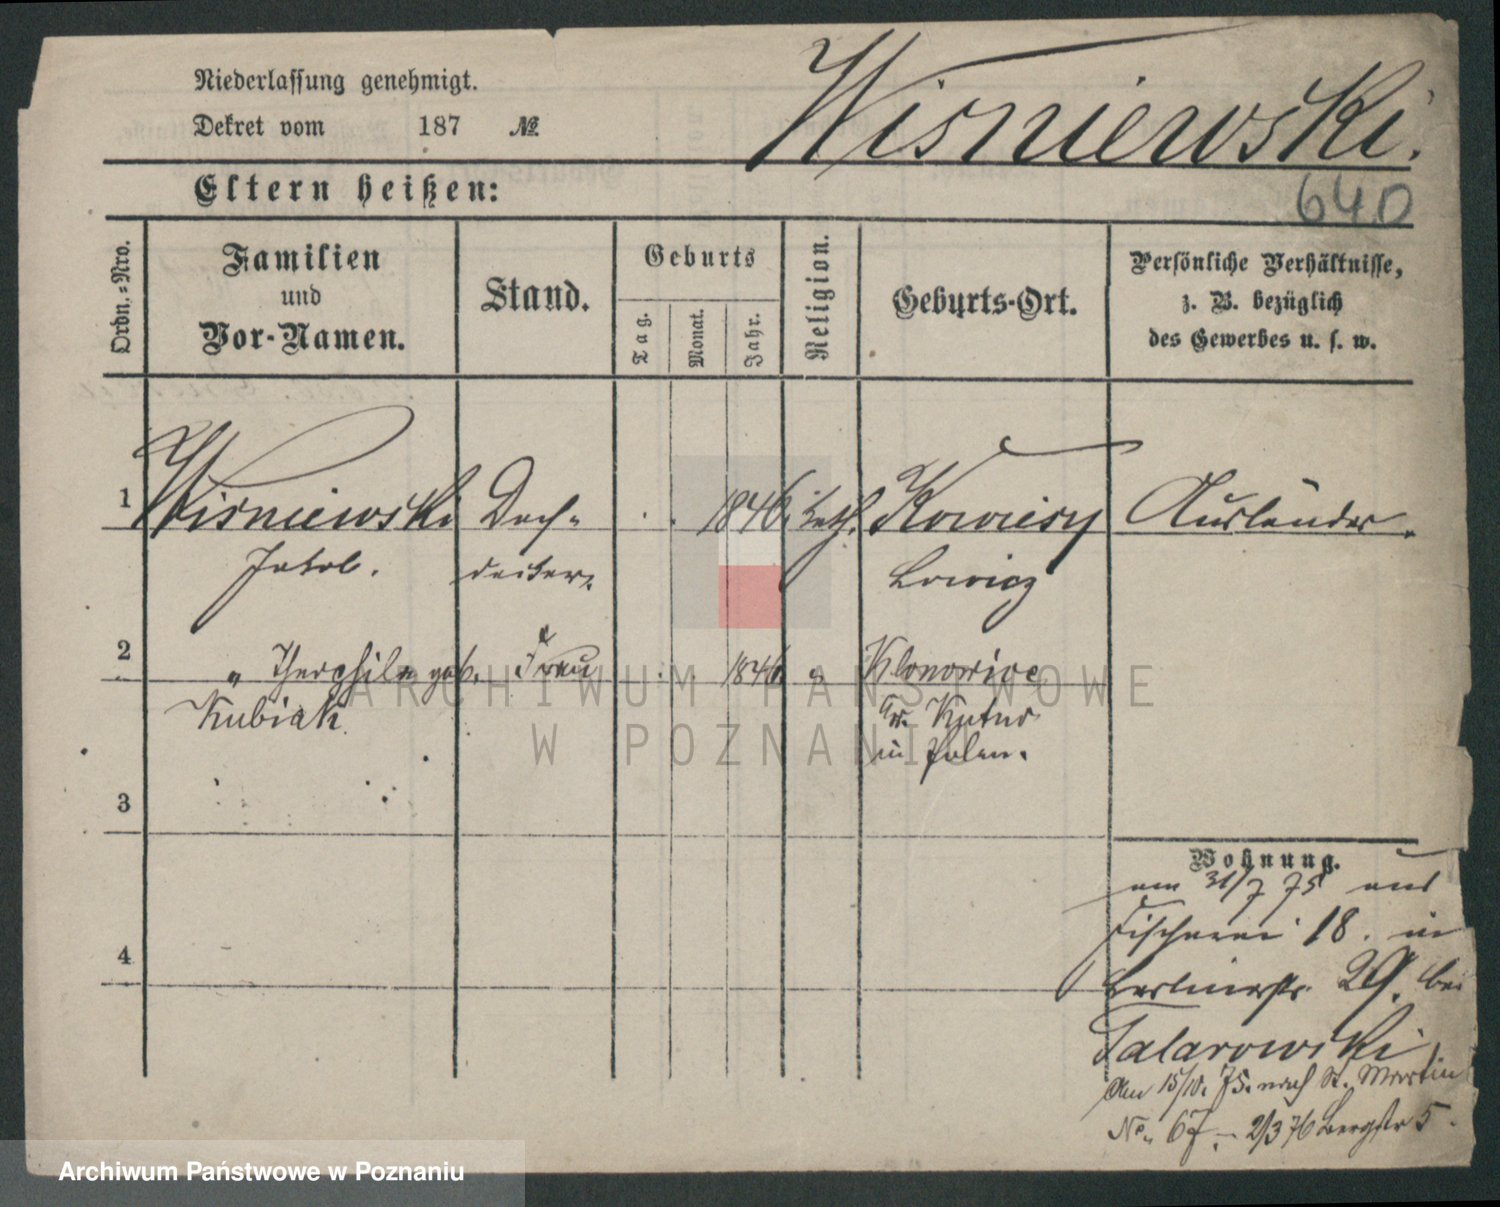 Niederlassung genehmigt.
Dekret vom 187 №
Wisniewski.
Eltern heißen:
640
Ordn.-Nro.
Familien
und
Vor-Namen.
Stand.
Geburts
Tag.
Monat.
Jahr.
Religion.
Geburts-Ort.
Persönliche Verhältnisse,
z. B. bezüglich
des Gewerbes u. s. w.
1 Wisniewski Dach- 1846. kath. Ausländer.
Jakob. decker. Lowicz
2 " Theophila geb. Frau 1846 " Klonowice
Kubiak Kr. Kutno
in Polen.
3
4
Wohnung.
am 31/7 75 aus
Fischerei 18. in
Berlinerstr. 29. bei
Talarowski
Am 15/10. 75. nach St. Martin
No. 67. – 2/3 76 Bergstr 5.
ARCHIWUM PAŃSTWOWE
W POZNANIU
Archiwum Państwowe w Poznaniu